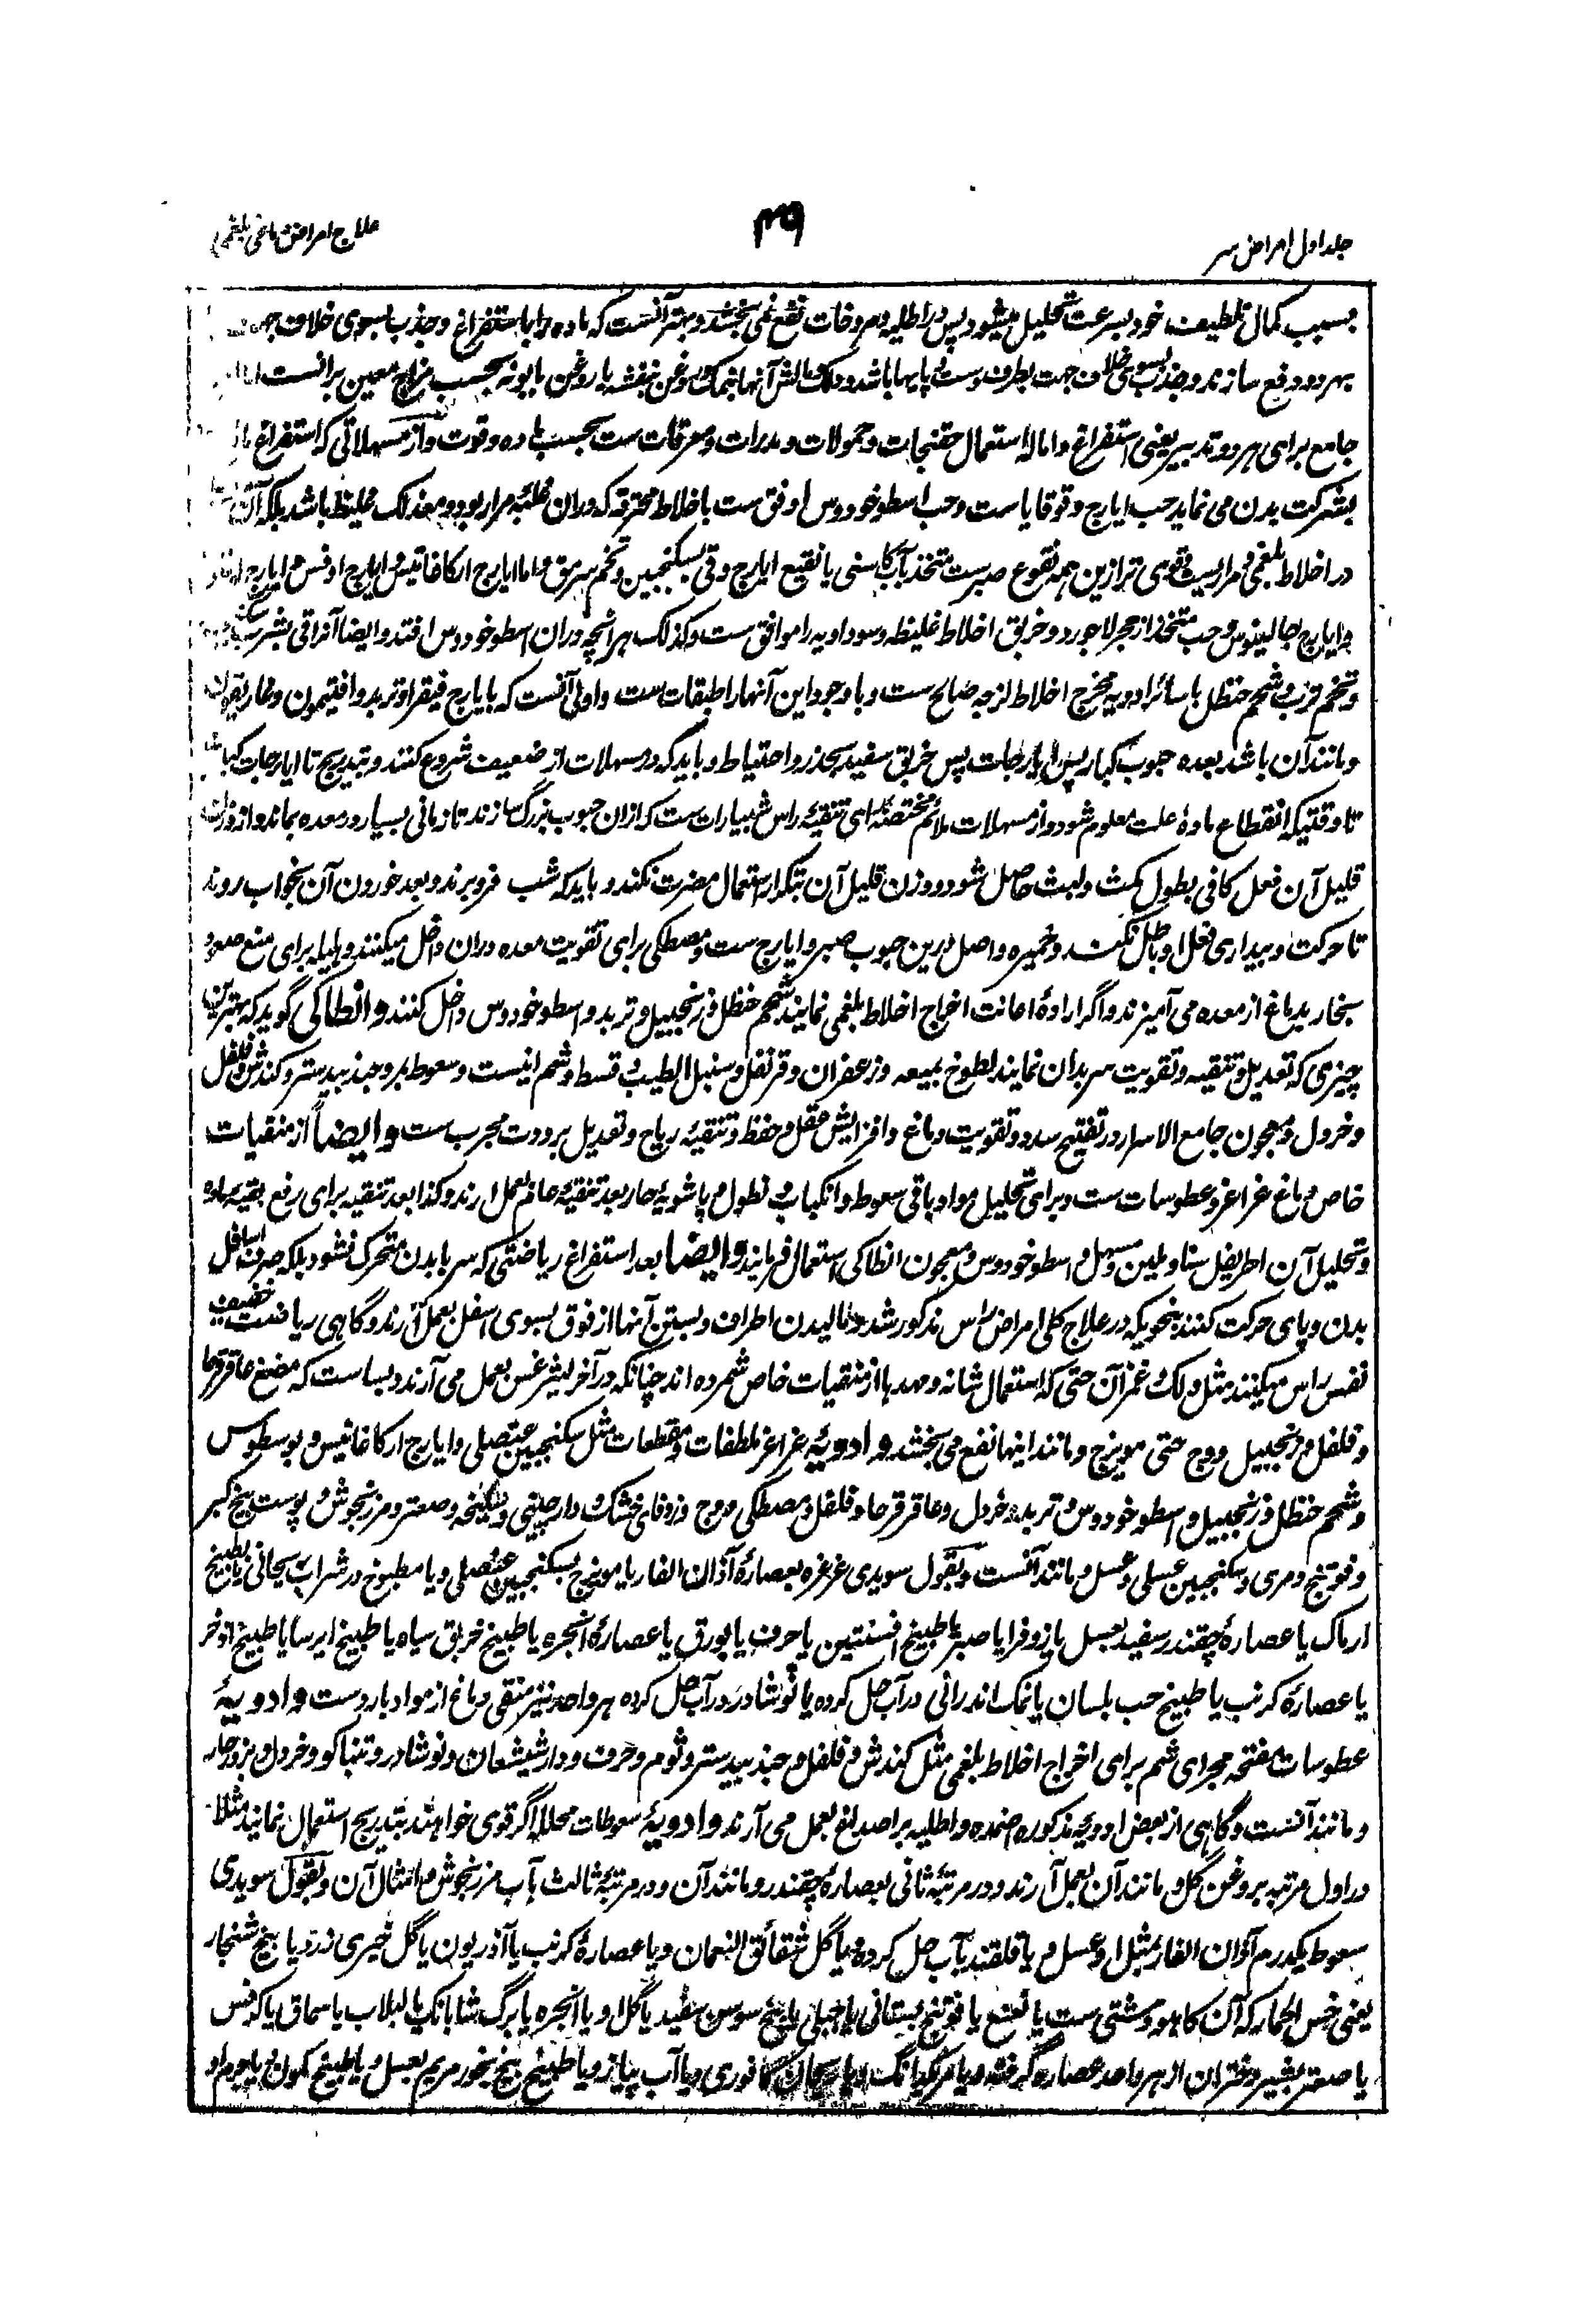 جلد اول امراض سر
۳۹
علاج امراض دماغی بلغمی
بسبب کمال تلطیف خود بسرعت تحلیل میشود پس در اطلیه و مروخات نفع نمی بخشد و بهتر آنست که ماده را باستفراغ و جذب بسوی خلاف جهت
بهر دو دفع سازند و جذب بسوی خلاف جهت بطرف دست و پایها باشد و دلک و مالش آنها بنمک و روغن بنفشه یا روغن بابونه بحسب مزاج معین بر انست
جامع برای هر دو تدبیر یعنی استفراغ و اماله استعمال حقنجات و حمولات و مدرات و معرقات ست بحسب ماده و قوت و از مسهلاتی که استفراغ
بشرکت بدن می نماید حب ایارج و قوقایا ست و حب اسطوخودوس اوفق ست باخلاط محترقه که دران غلبه مرار بود و معذلک غلیظ باشد بلکه
در اخلاط بلغمی و مراریست و قوی تر ازین همه نقوع صبر ست متخذ بآب کاسنی یا نقیع ایارج و قی بسکنجبین و تخم سرمق و اما ایارج ارکاغانیس و ایارج لوغس و ایارج
و ایارج جالینوس و حب متخذ از حجر لاجورد و خربق اخلاط غلیظه و سوداویه را موافق ست و کذلک هر انچه دران اسطوخودوس افتد و ایضا
و تخم ترب و شحم حنظل با سائر ادویه مخرج اخلاط لزجه صالح ست و باوجود این آنها را طبقات ست و اولی آنست که بایارج فیقرا و تربد و افتیمون و غاریقون
و مانند آن باشد بعده حبوب کبار پس ایارجات پس خربق سفید بحذر و احتیاط و باید که در مسهلات از ضعیف شروع کنند و بتدریج تا ایارجات کبار
تا وقتیکه انقطاع ماده علت معلوم شود و از مسهلات ملائم مختصه برای تنقیه راس شبیارات ست که ازان حبوب بزرگ سازند تا زمانی بسیار در معده بماند و از وزن
قلیل آن فعل کافی بطول مکث و لبث حاصل شود و وزن قلیل آن بتکرار استعمال مضرت نکند و باید که شب فرو برند و بعد خوردن آن بخواب روند
تا حرکت و بیداری فعل او باطل نکند و خمیره و اصل درین حبوب صبر و ایارج ست و مصطکی برای تقویت معده دران داخل میکنند و هلیله برای منع صعود
بخار بدماغ از معده می آمیزند و اگر اراده اعانت اخراج اخلاط بلغمی نمایند شحم حنظل و زنجبیل و تربد و اسطوخودوس داخل کنند و انطاکی گوید که بهترین
چیزی که تعدیل و تنقیه و تقویت سر بدان نمایند لطوخ بمیعه و زعفران و قرنفل و سنبل الطیب و قسط و شم اینست و سعوط بر و جندبیدستر و کندش و فلفل
و خردل و معجون جامع الاسرار در تفتیح سدد و تقویت دماغ و افزایش عقل و حفظ و تنقیه ریاح و تعدیل برودت مجرب ست و ایضاً از منقیات
خاص دماغ غراغر و عطوسات ست و برای تحلیل مواد باقی سعوط و انکباب و نطول و پاشویه حار بعد تنقیه عام بعمل ارند و کذا بعد تنقیه برای رفع بقیه ماده
و تحلیل آن اطریفل سنا و ملین و مسهل و اسطوخودوس و معجون انطاکی استعمال فرمایند و ایضا بعد استفراغ ریاضتی که سر با بدن متحرک نشود بلکه صرف اسافل
بدن و پای حرکت کنند بنحویکه در علاج کلی امراض راس مذکور شد و مالیدن اطراف و بستن آنها از فوق بسوی اسفل بعمل آرند و گاهی ریاضت خفیف
نفس راس میکنند مثل دلک و غمز آن حتی که استعمال شانه و صدها از منقیات خاص شمرده اند چنانکه در آخر لیثرغس بعمل می آرند و بسا ست که مضغ عاقرقرحا
و فلفل و زنجبیل و وج حتی مویزج و مانند اینها نفع می بخشد و ادویه غراغر ملطفات و مقطعات مثل سکنجبین عنصلی و ایارج ارکاغانیس و یوسطوس
و شحم حنظل و زنجبیل و اسطوخودوس و تربد و خردل و عاقرقرحا و فلفل و مصطگی و وج و زوفای خشک و دارچینی و سلیخه و صعتر و مرزنجوش و پوست بیخ کبر
و فوتنج و مری و سکنجبین عسلی و عسل و مانند آنست و بقول سویدی غرغره بعصاره آذان الفار یا مویزج بسکنجبین عنصلی و یا مطبوخ در شراب ریحانی یا بطبیخ
اراک یا عصاره چقندر سفید بعسل یا زوفرا یا صبر یا طبیخ افسنتین یا حرف یا بورق یا عصاره انجره یا طبیخ خربق سیاه یا طبیخ ایرسا یا طبیخ اذخر
یا عصاره کرنب یا طبیخ حب بلسان یا نمک اندرانی در آب حل کرده یا نوشادر در آب حل کرده هر واحد نیز منقی دماغ از مواد بارد ست و ادویه
عطوسات مفتحه مجرای شم برای اخراج اخلاط بلغمی مثل کندش و فلفل و جندبیدستر و ثوم و حرف و دارشیشعان و نوشادر و تنباکو و خردل و بزور حار
و مانند آنست و گاهی از بعض ادویه مذکوره ضمده و اطلیه بر اصداغ بعمل می آرند و ادویه سعوطات محلله اگر قوی خواهند بتدریج استعمال نمایند مثلا
در اول مرتبه بروغن گل و مانند آن بعمل آرند و در مرتبه ثانی بعصاره چقندر و مانند آن و در مرتبه ثالث بآب مرزنجوش و امثال آن و بقول سویدی
سعوط یکدرم آذان الفار بمثل او عسل و یا قلقند بآب حل کرده و یا گل شقائق النعمان و یا عصاره کرنب یا آذریون یا گل خیری زرد یا بیخ شنجار
یعنی خس الحمار که آن کاهو دشتی ست یا نعنع یا فوتنج بستانی یا جبلی یا بیخ سوسن سفید یا گل او یا انجره یا برگ شابانک یا لبلاب یا سماق یا کرفس
یا صعتر بشیر دختران از هر واحد عصاره گرفته و یا کافوری و یا آب پیاز و یا طبیخ بیخ بخور مریم بعسل و یا طبیخ کمون و یا